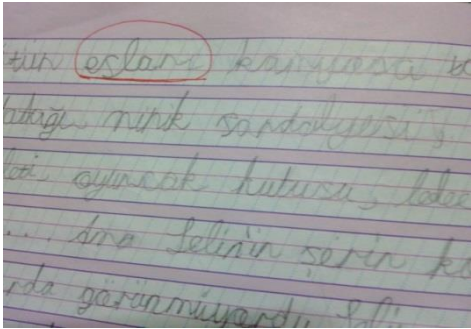 tün eşları kamyona
yatağı minik sandalyesi,
oyuncak kutusu,
... Ama Selin'in şirin
rda görünmüyordu